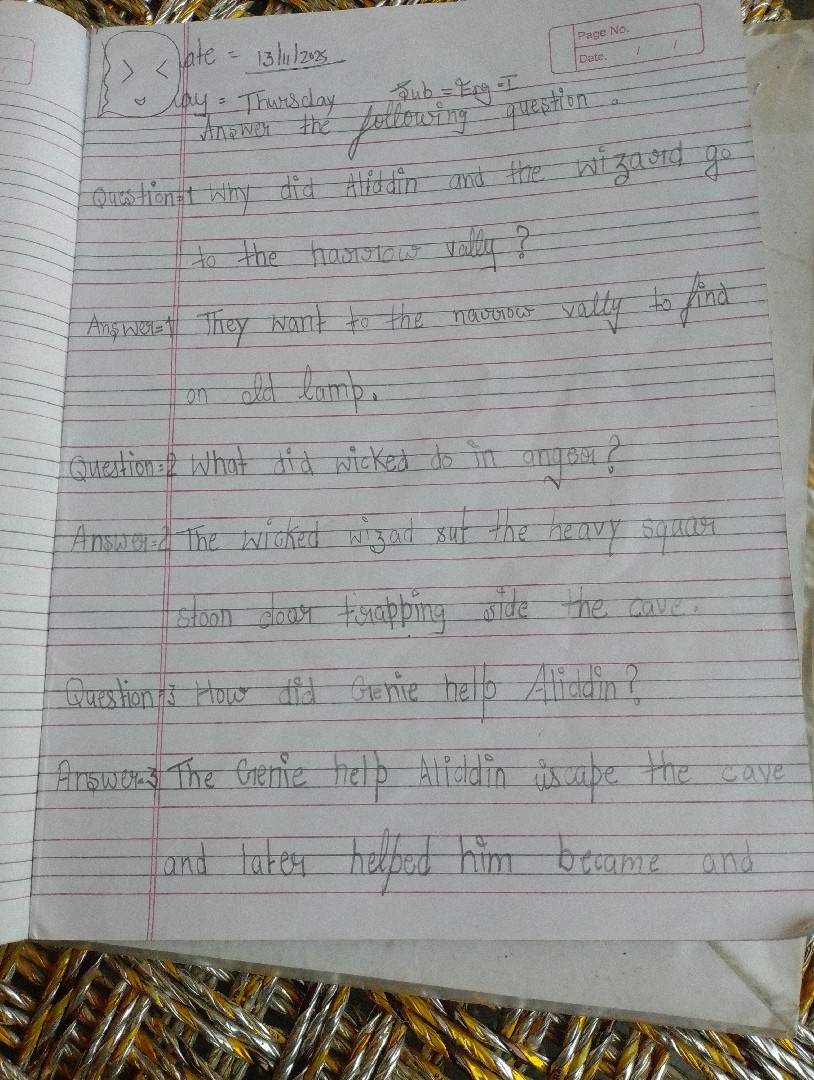 Page No.
Date. / /
ate = 13/11/2025
ay = Thursday Sub = Eng-I
Answer the following question.
Question=1 Why did Aliddin and the wizaord go
to the narrow vally?
Answer=1 They want to the narrow vally to find
on old lamp.
Question=2 What did wicked do in angeer?
Answer=2 The wicked wizad sut the heavy squar
stoon doar trapping side the cave.
Question=3 How did Genie help Aliddin?
Answer=3 The Genie help Aliddin iscape the cave
and later helped him became and